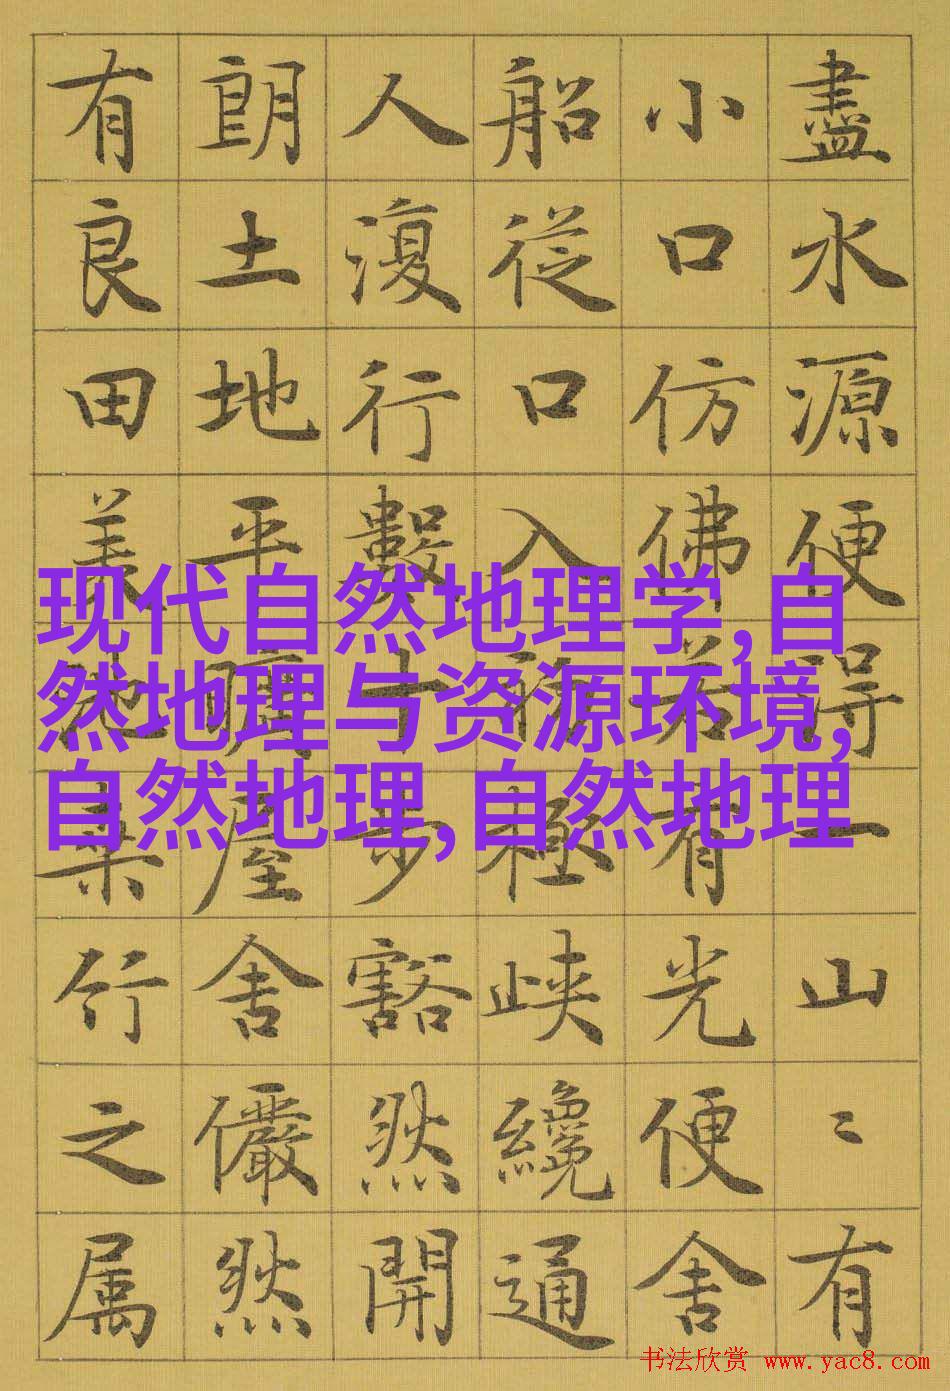 盡水源便得一山〻有
小口仿佛若有光便舍
船從口入初極峽纔通
人復行數十步豁然開
朗土地平曠屋舍儼然
有良田美池桑竹之属
现代自然地理学,自
然地理与资源环境,
自然地理,自然地理
书法欣赏 www.yac8.com